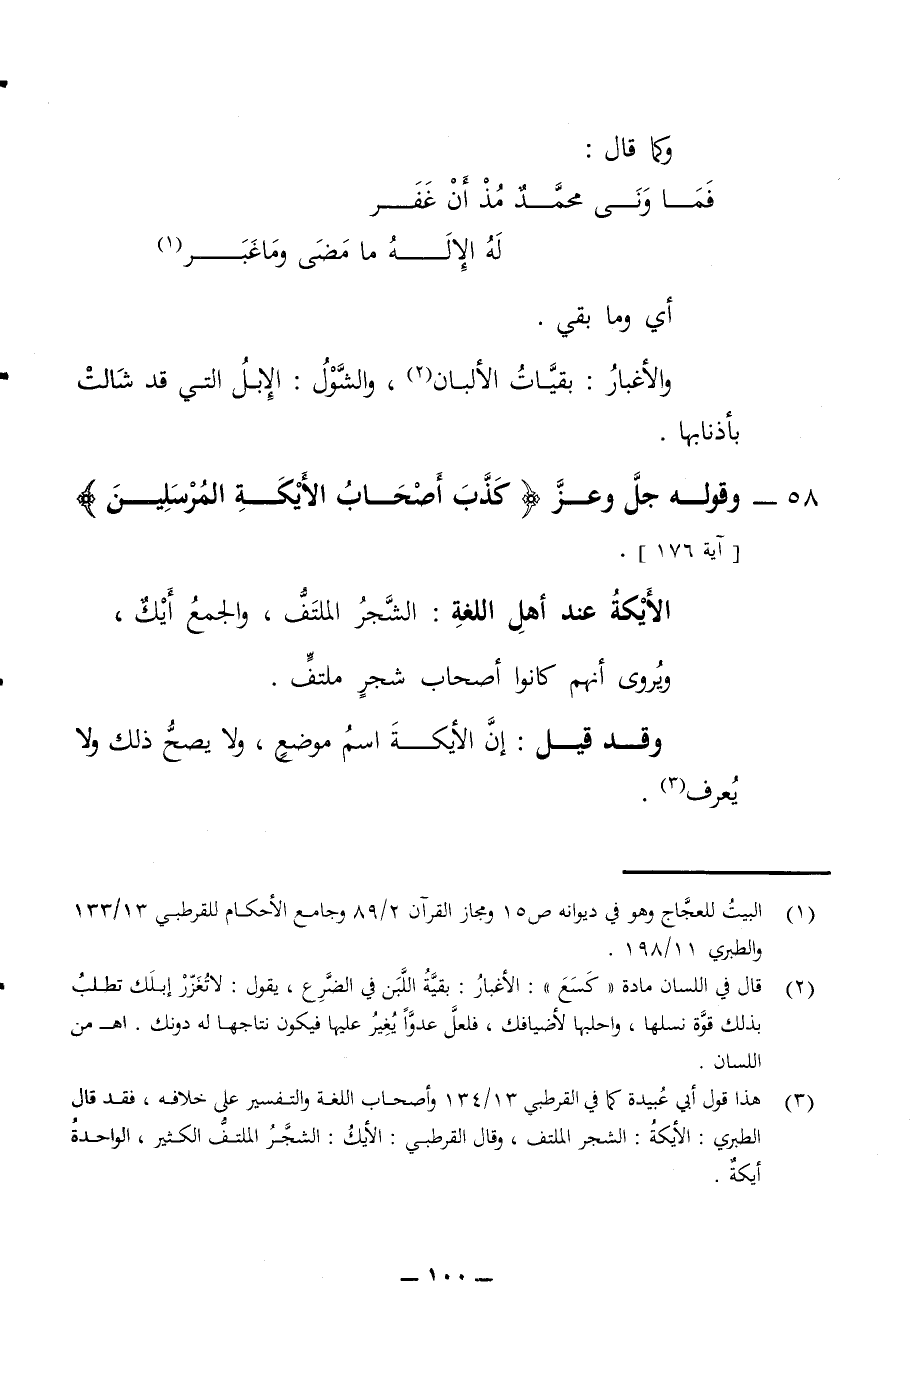 وكما قال :
فَمَـــا وَنَـــى محمَّـــدٌ مُذْ أَنْ غَفَـــر
لَهُ الإِلَـــــهُ ما مَضَى ومَاغَبَـــــر(١)
أي وما بقي .
والأغبارُ : بقيَّاتُ الألبان(٢) ، والشَّوْلُ : الإبلُ التي قد شَالتْ
بأذنابها .
٥٨ ــ وقولـــه جلَّ وعـــزَّ ﴿ كَذَّبَ أَصْحَـــابُ الأَيْكَـــةِ المُرْسَلِيـــنَ ﴾
[ آية ١٧٦ ] .
الأَيْكةُ عند أهلِ اللغةِ : الشَّجرُ الملتَفُّ ، والجمعُ أَيْكٌ ،
ويُروى أنهم كانوا أصحاب شجرٍ ملتفٍّ .
وقـــد قيـــل : إنَّ الأيكـــةَ اسمُ موضعٍ ، ولا يصحُّ ذلك ولا
يُعرف(٣) .
(١) البيتُ للعجَّاج وهو في ديوانه ص١٥ ومجاز القرآن ٨٩/٢ وجامع الأحكـام للقرطبـي ١٣٣/١٣
والطبري ١٩٨/١١ .
(٢) قال في اللسان مادة « كَسَعَ » : الأغبارُ : بقيَّةُ اللَّبَن في الضَّرع ، يقول : لاتُغَزّرْ إبـلَك تطـلبُ
بذلك قوَّة نسلها ، واحلبها لأضيافك ، فلعلَّ عدوَّاً يُغِيرُ عليها فيكون نتاجهـا له دونك . اهـ من
اللسان .
(٣) هذا قول أبي عُبيدة كما في القرطبي ١٣٤/١٣ وأصحـاب اللغة والتـفسير على خلافـه ، فقـد قال
الطبري : الأيكةُ : الشجر الملتف ، وقال القرطبـي : الأيكُ : الشجَّـرُ الملتـفُّ الكثير ، الواحـدةُ
أيكةٌ .
ــ ١٠٠ ــ